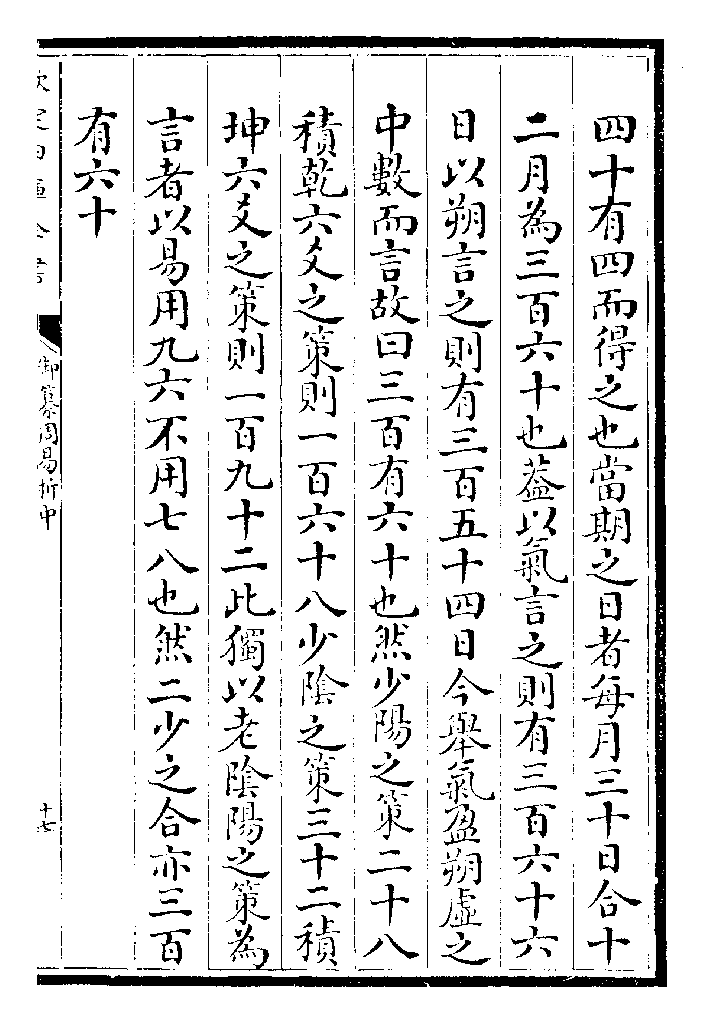 四十有四而得之也當期之日者每月三十日合十
二月為三百六十也葢以氣言之則有三百六十六
日以朔言之則有三百五十四日今舉氣盈朔虛之
中數而言故曰三百有六十也然少陽之策二十八
積乾六爻之策則一百六十八少陰之策三十二積
坤六爻之策則一百九十二此獨以老陰陽之策為
言者以易用九六不用七八也然二少之合亦三百
有六十
御纂周易折中
十七